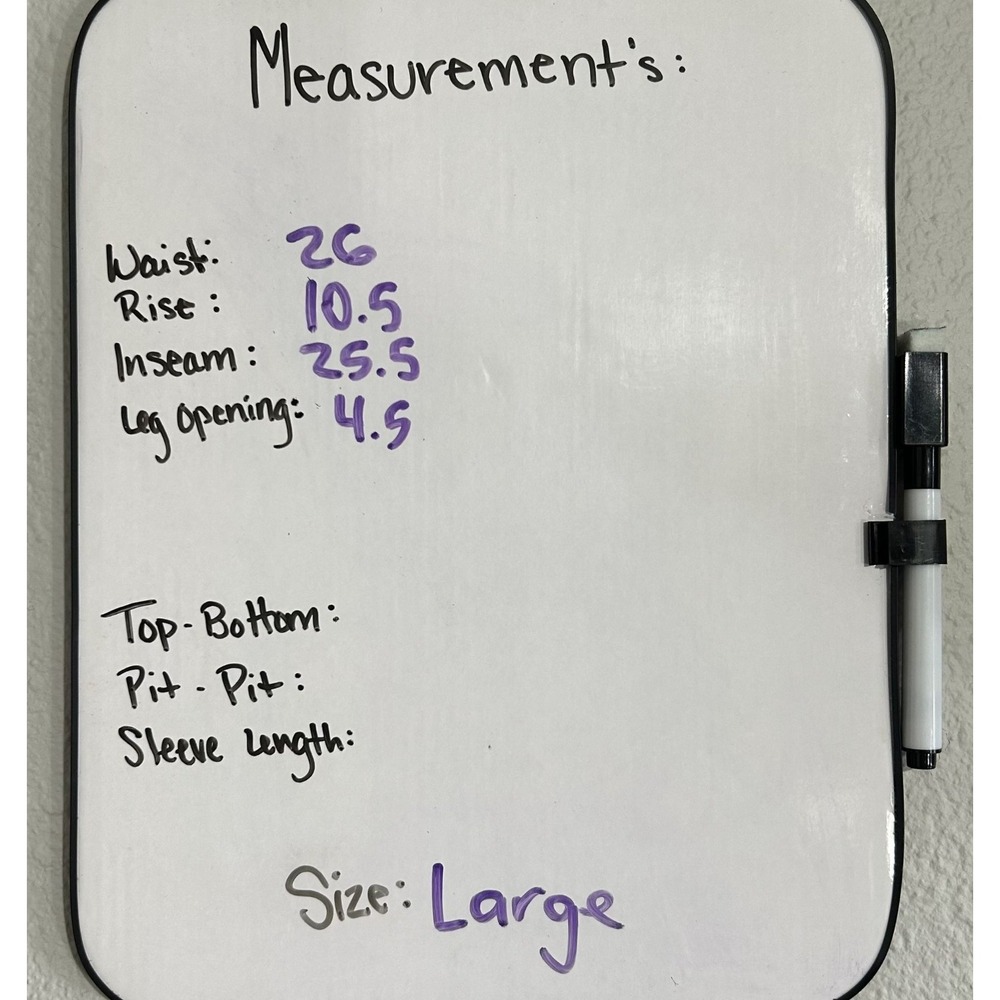 Measurement's:
Waist: 26
Rise: 10.5
Inseam: 25.5
Leg opening: 4.5
Top-Bottom:
Pit-Pit:
Sleeve Length:
Size: Large